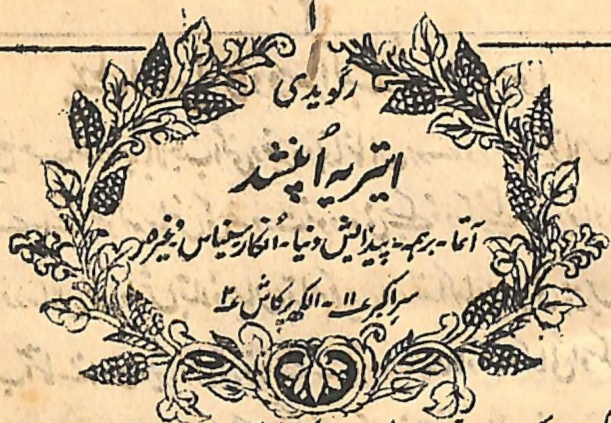 ۱
رگویدی
ایتریہ اُپنشد
آتما - برہم - پیدائش دنیا - اُنکار سنیاس وغیرہ
سراکبر ع۱۱ - الکھ پرکاش ع۲